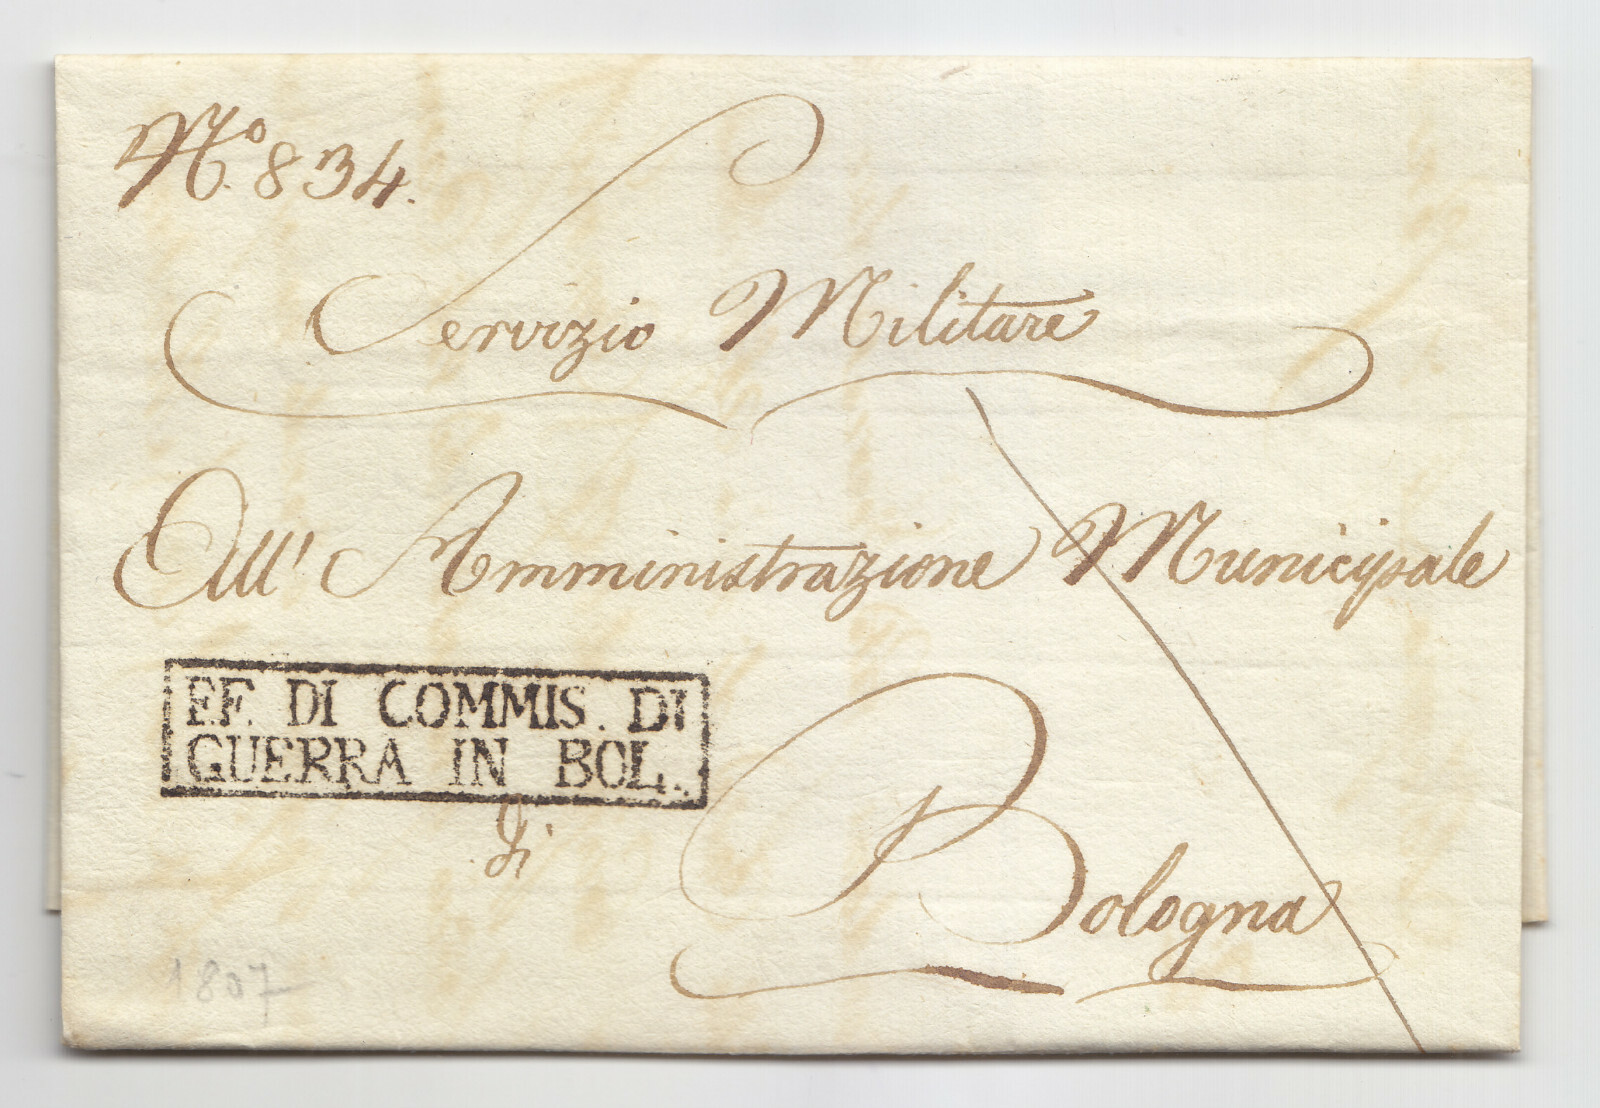 Nº. 834.
Servizio Militare
All' Amministrazione Municipale
EF. DI COMMIS. DI
GUERRA IN BOL.
di
Bologna
1807